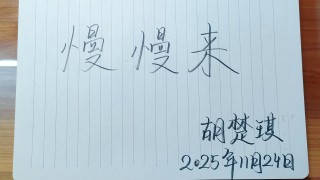 慢慢来
胡楚琪
2025年11月24日